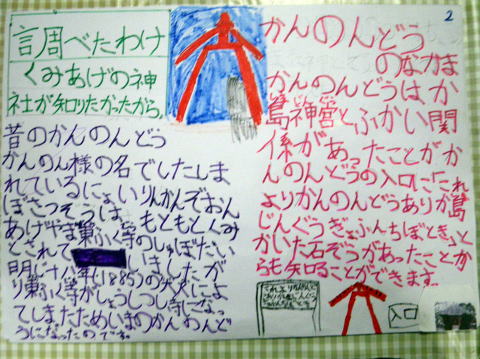 調べたわけ
くみあげの神
社が知りたかったから。
昔のかんのんどう
かんのん様の名でしたしま
れているにょいりんかんぞおん
ぼさつぞうは、もともとくみ
あげやま東ふく寺のしゅぼだい
とされて
いました。が
明じ十八年(1885)の火災によ
り東ふく寺がしょうしつし寺になっ
てしまたためいまのかんのんど
うになったのです。
2
かんのんどう
のなかま
かんのんどうはか
島神宮とふかい関
係があったことがか
んのんどうの入口に「これ
よりかんのんどうありか島
じんぐうぎょふんちぼときっと
かいた石ぞうがあったことか
らも知ることができます。
入口